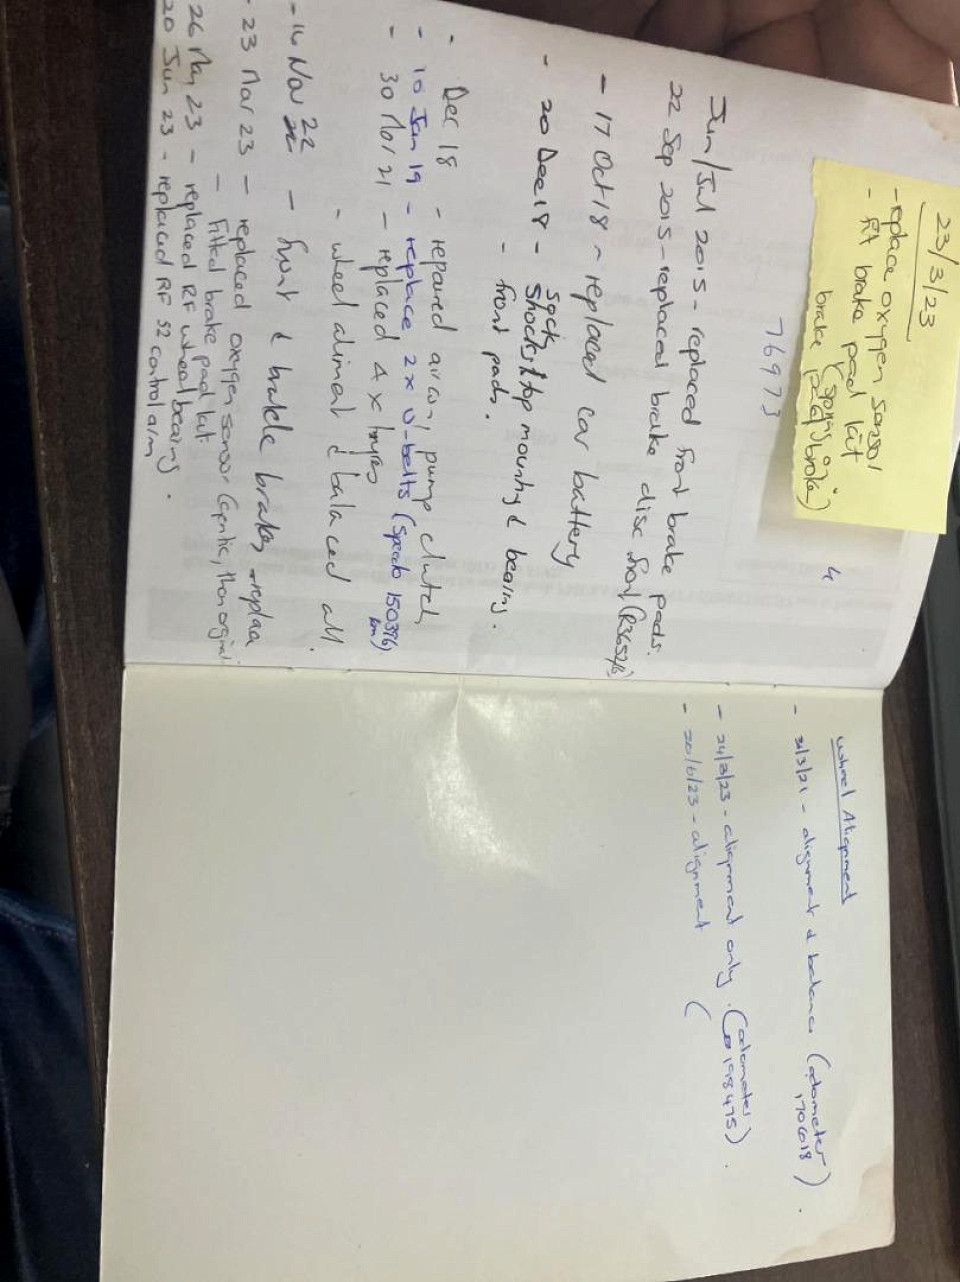 23/3/23
- replace oxygen sensor
- fit brake pad kit
(spring on
brake pad broke)
76973
4
Jun/Jul 2015 - replaced front brake pads.
22 Sep 2015 - replaced brake disc front (R3652/6)
- 17 Oct 18 - replaced car battery
- 20 Dec 18 - shocks & top mounty & bearing.
- front pads.
- Dec 18 - repaired aircon, pump clutch
- 10 Jan 19 - replace 2x V-belts (Speedo 150396 km)
- 30 Mar 21 - replaced 4 x tyres
- wheel alimat & balaced all.
- 14 Nov 22 - front & brakes
- 23 Mar 23 - replaced oxygen sensor (
- Fitted brake pad kit.
26 May 23 - replaced RF wheel bearing.
20 Jun 23 - replaced RF S2 control arm
Wheel Alignment
- 31/3/21 - alignment & balance (odometer
170618)
- 24/3/23 - alignment only. (odometer
198475)
- 20/6/23 - alignment (